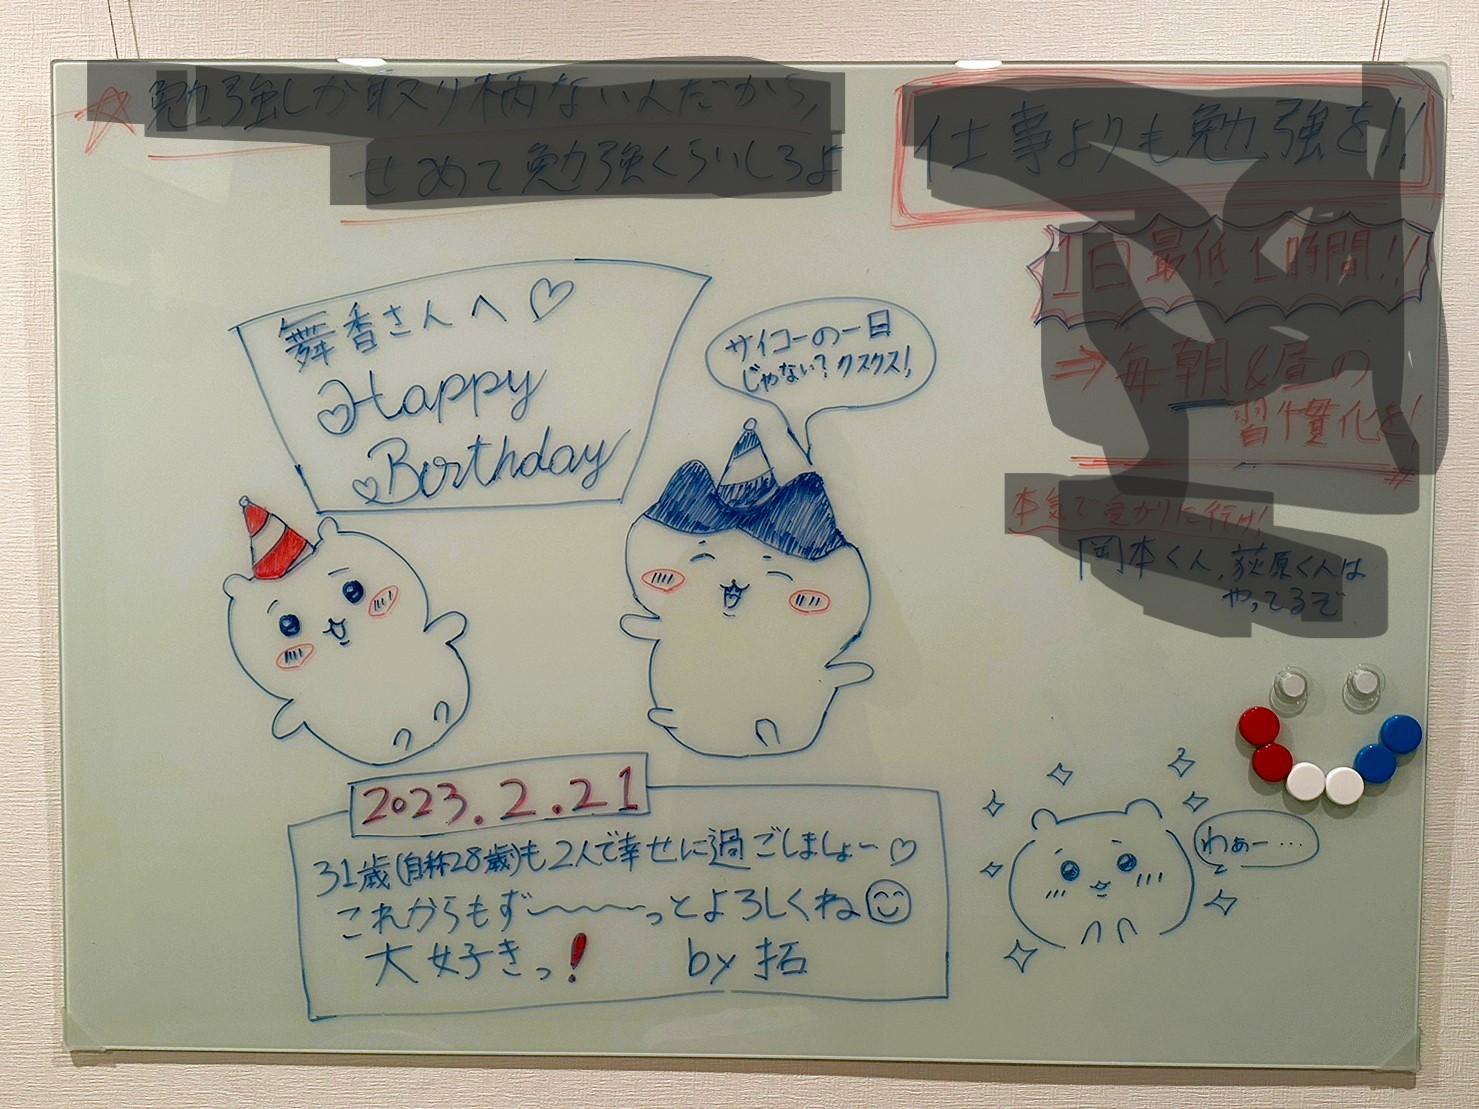 勉強しか取り柄ない人だから、
せめて勉強くらいしろよ
仕事よりも勉強を!!
1日最低1時間!!
⇒毎朝&昼の
習慣化を!
本気で受かりに行け!
岡本くん、荻原くんは
やってるぞ
舞香さんへ♡
Happy
Birthday
サイコーの一日
じゃない?クスクス!
2023.2.21
31歳(自称28歳)も2人で幸せに過ごしましょー♡
これからもず〜〜〜っとよろしくね
大好きっ!
by 拓
わぁー…